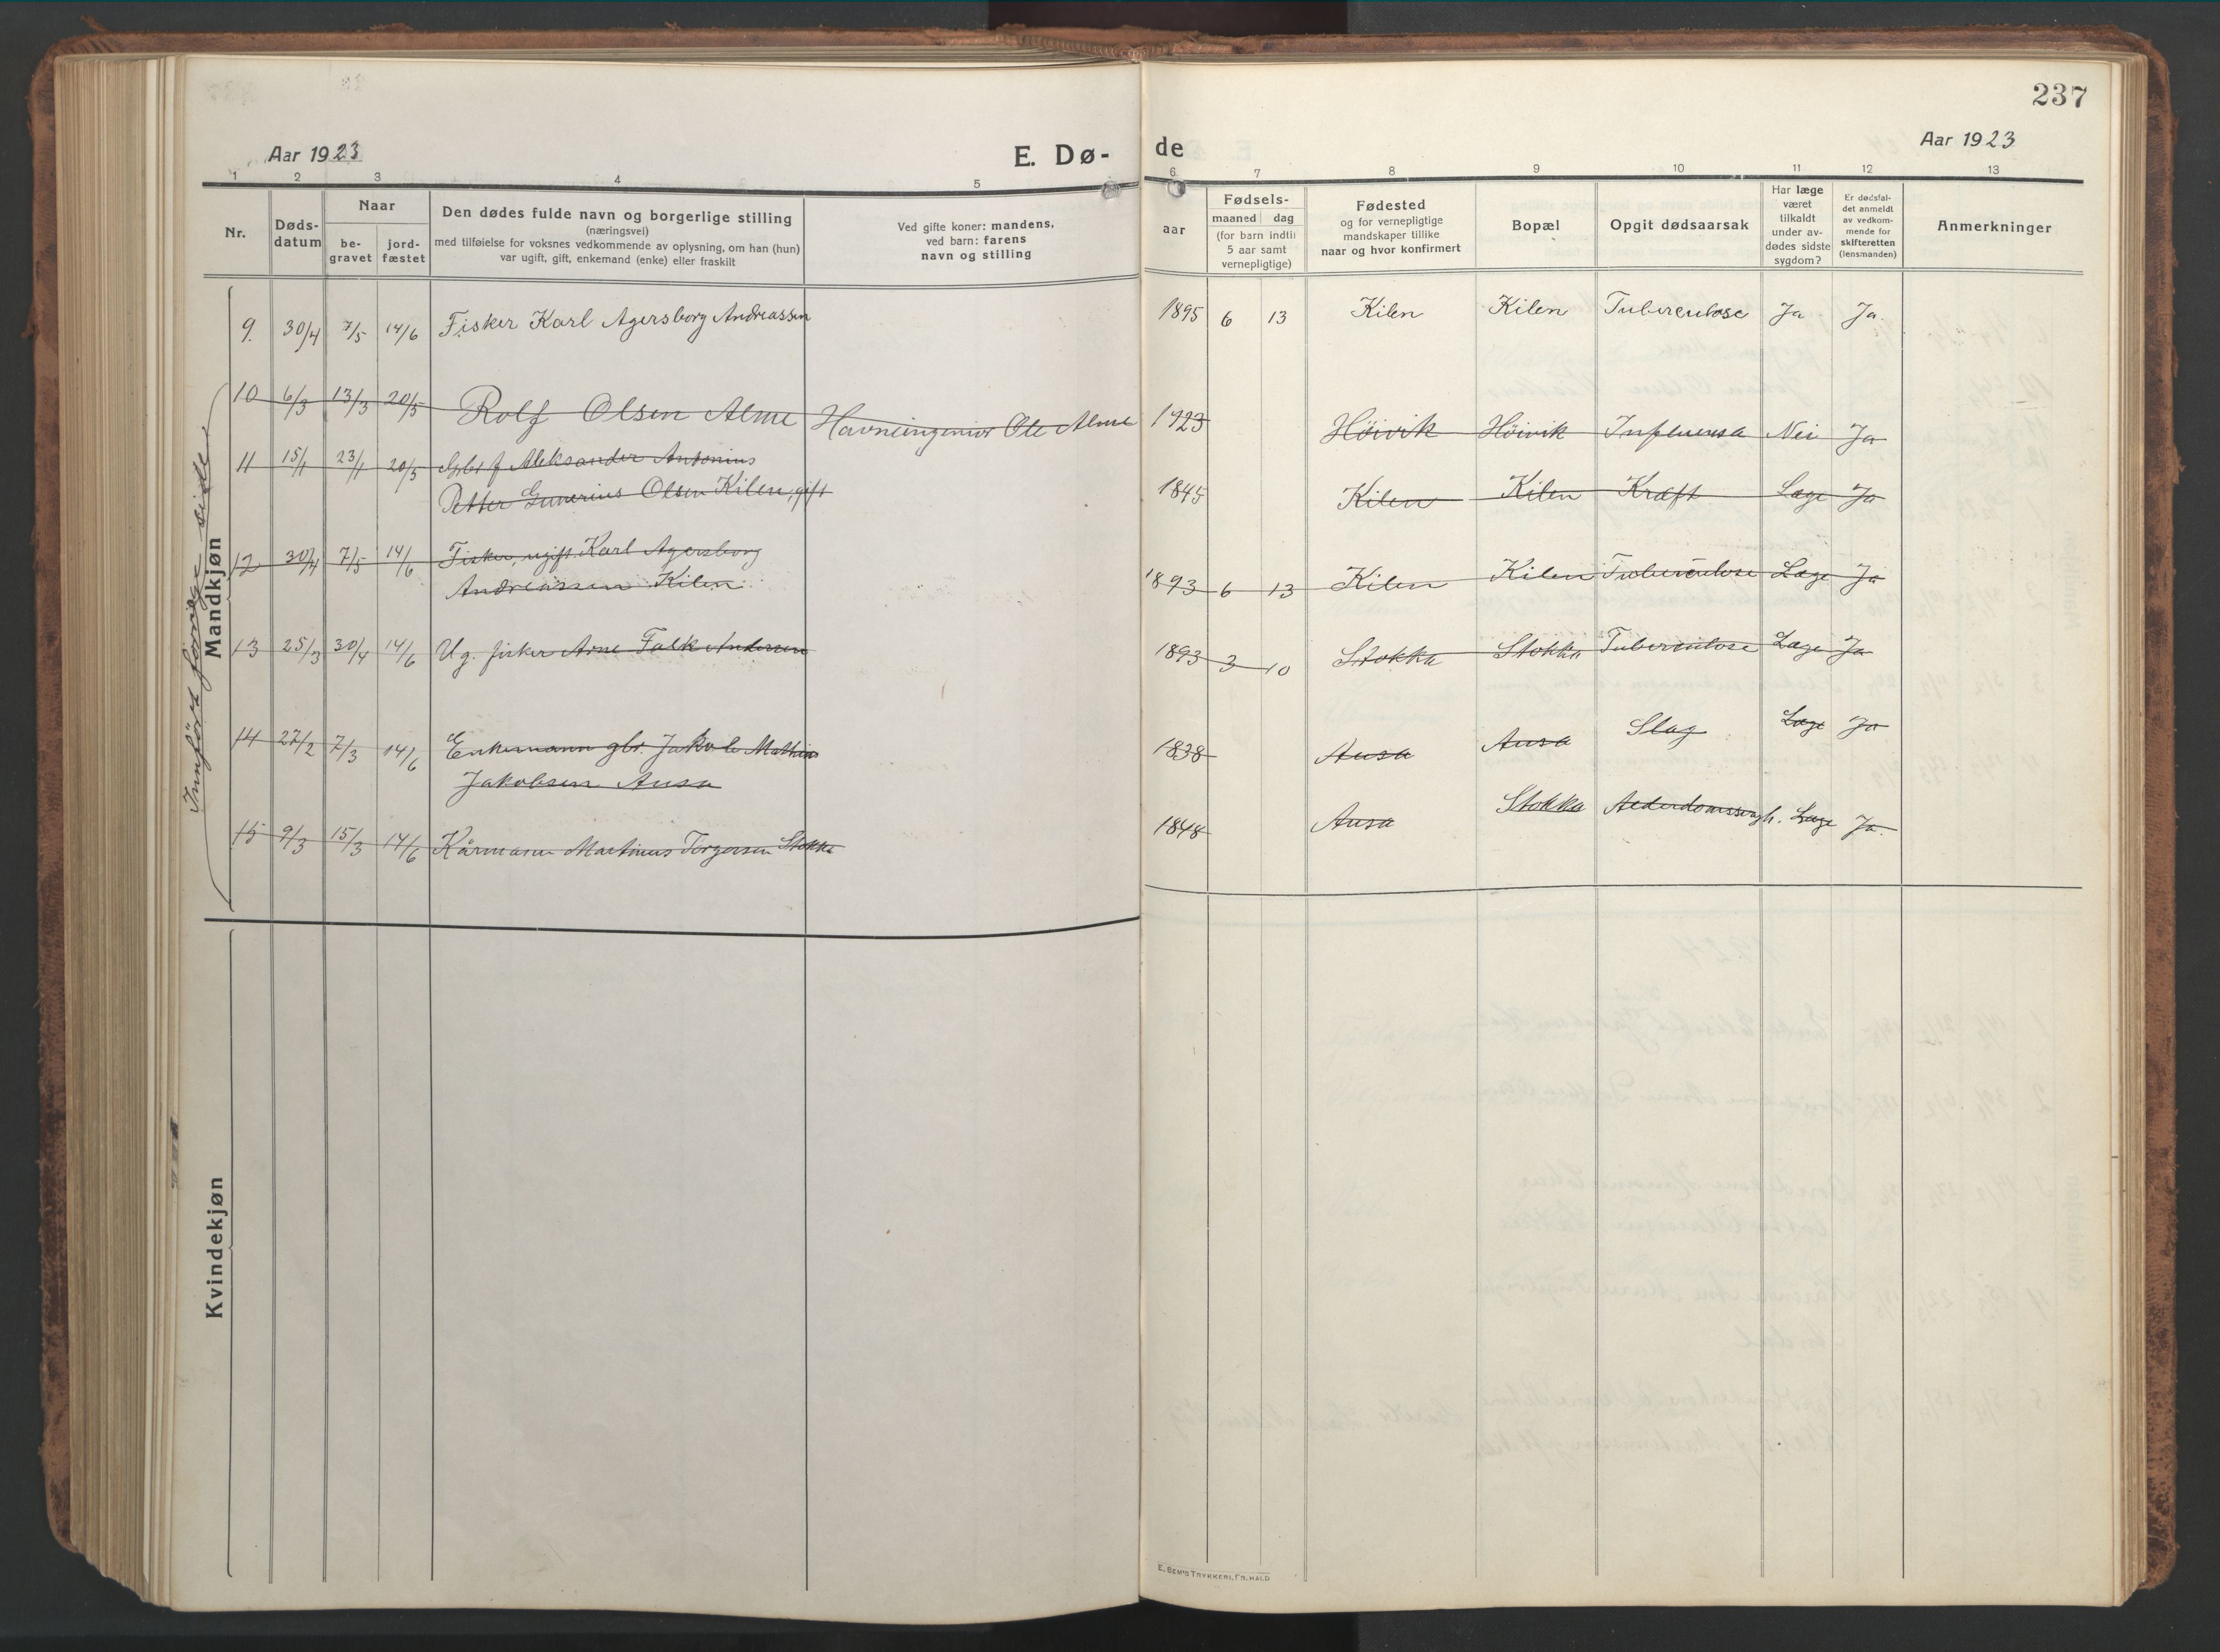 237
Aar 1923
E. Dø-
de
Aar 1923
1 2 3 4 5 6 7 8 9 10 11 12 13
Nr.
Døds-
datum
Naar
be-
gravet
jord-
fæstet
Den dødes fulde navn og borgerlige stilling
(næringsvei)
med tilføielse for voksnes vedkommende av oplysning, om han (hun)
var ugift, gift, enkemand (enke) eller fraskilt
Ved gifte koner: mandens,
ved barn: farens
navn og stilling
Fødsels-
aar
maaned dag
(for barn indtil
5 aar samt
vernepligtige)
Fødested
og for vernepligtige
mandskaper tillike
naar og hvor konfirmert
Bopæl
Opgit dødsaarsak
Har læge
været
tilkaldt
under av-
dødes sidste
sygdom?
Er dødsfal-
det anmeldt
av vedkom-
mende for
skifteretten
(lensmanden)
Anmerkninger
Innført forrige side
Mandkjøn
9. 30/4 7/5 14/6 Fisker Karl Agersborg Andreassen 1895 6 13 Kilen Kilen Tuberculose Ja Ja.
10 6/3 13/3 20/5 Rolf Olsen Alme Havneingeniør Ole Alme 1923 Høivik Høivik Influensa Nei Ja
11 15/1 23/1 20/5 Aleksander Antonius
Petter Gunerius Olsen Kilen, gift 1845 Kilen Kilen Kræft Læge Ja
12 30/4 7/5 14/6 Fisker, ugift Karl Agersborg
Andreassen Kilen 1893 6 13 Kilen Kilen Tuberculose Læge Ja
13 25/3 30/4 14/6 Ug. fisker Arne Falk Andersen 1893 3 10 Stokka Stokka Tuberculose Læge Ja
14 27/2 7/3 14/6 Enkemann gbr. Jakob Mathias
Jakobsen Ausa 1838 Ausa Ausa Slag Læge Ja
15 9/3 15/3 14/6 Kårmann Martinus Torgersen Stokka 1848 Ausa Stokka Læge Ja.
Kvindekjøn
E. SEM'S TRYKKERI, FR.HALD